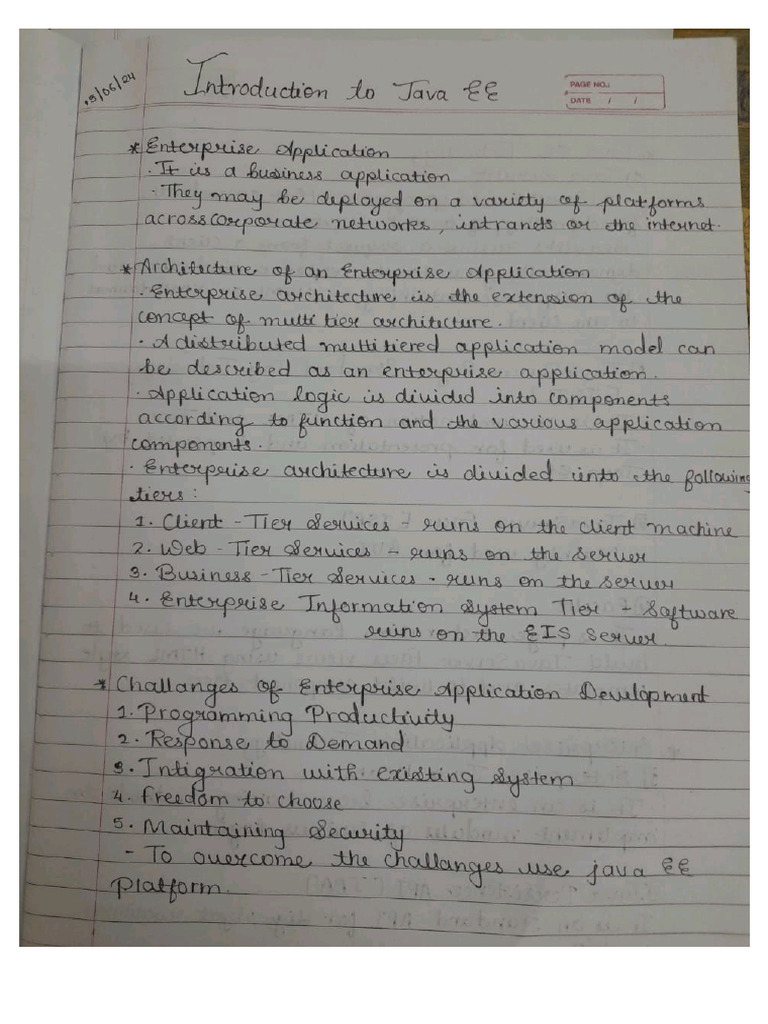 Introduction to Java EE
PAGE NO.:
DATE / /
* Enterprise Application
. It is a business application
- They may be deployed on a variety of platforms
across corporate networks, intranets or the internet.
* Architecture of an Enterprise Application
. Enterprise architecture is the extension of the
concept of multi tier architecture.
. A distributed multitiered application model can
be described as an enterprise application.
. Application logic is divided into components
according to function and the various application
components.
. Enterprise architecture is divided into the following
tiers:
1. Client - Tier Services - runs on the client machine
2. Web - Tier Services - runs on the server
3. Business - Tier Services - runs on the server
4. Enterprise Information System Tier - Software
runs on the EIS server.
* Challanges of Enterprise Application Development
1. Programming Productivity
2. Response to Demand
3. Intigration with existing System
4. freedom to choose
5. Maintaining Security
- To overcome the challanges use java EE
platform.